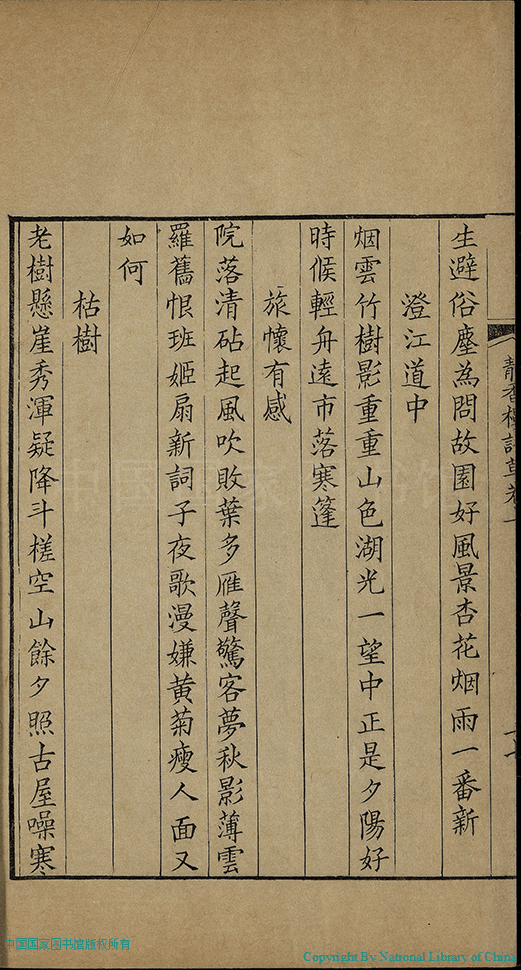 生避俗塵為問故園好風景杏花烟雨一番新
澄江道中
烟雲竹樹影重重山色湖光一望中正是夕陽好
時候輕舟遠市落寒篷
旅懷有感
院落清砧起風吹敗葉多雁聲驚客夢秋影薄雲
羅舊恨班姬扇新詞子夜歌漫嫌黄菊瘦人面又
如何
枯樹
老樹懸崖秀渾疑降斗槎空山餘夕照古屋噪寒
中国国家图书馆版权所有
Copyright By National Library of China